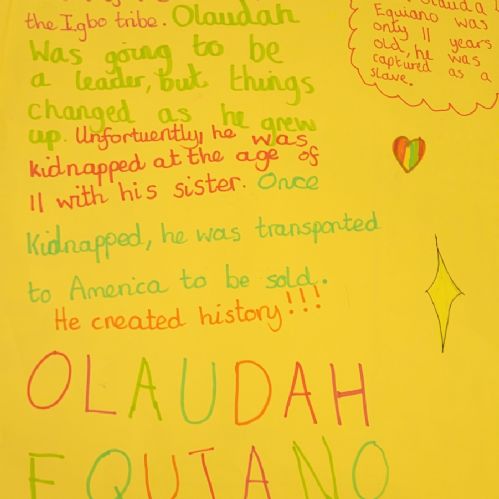 the Igbo tribe. Olaudah
Was going to be
a leader, but things
changed as he grew
up. Unfortuently, he was
kidnapped at the age of
11 with his sister. Once
Kidnapped, he was transported
to America to be sold.
He created history!!!
OLAUDAH
EQUIANO
Equiano was
only 11 years
old, he was
captured as a
slave.